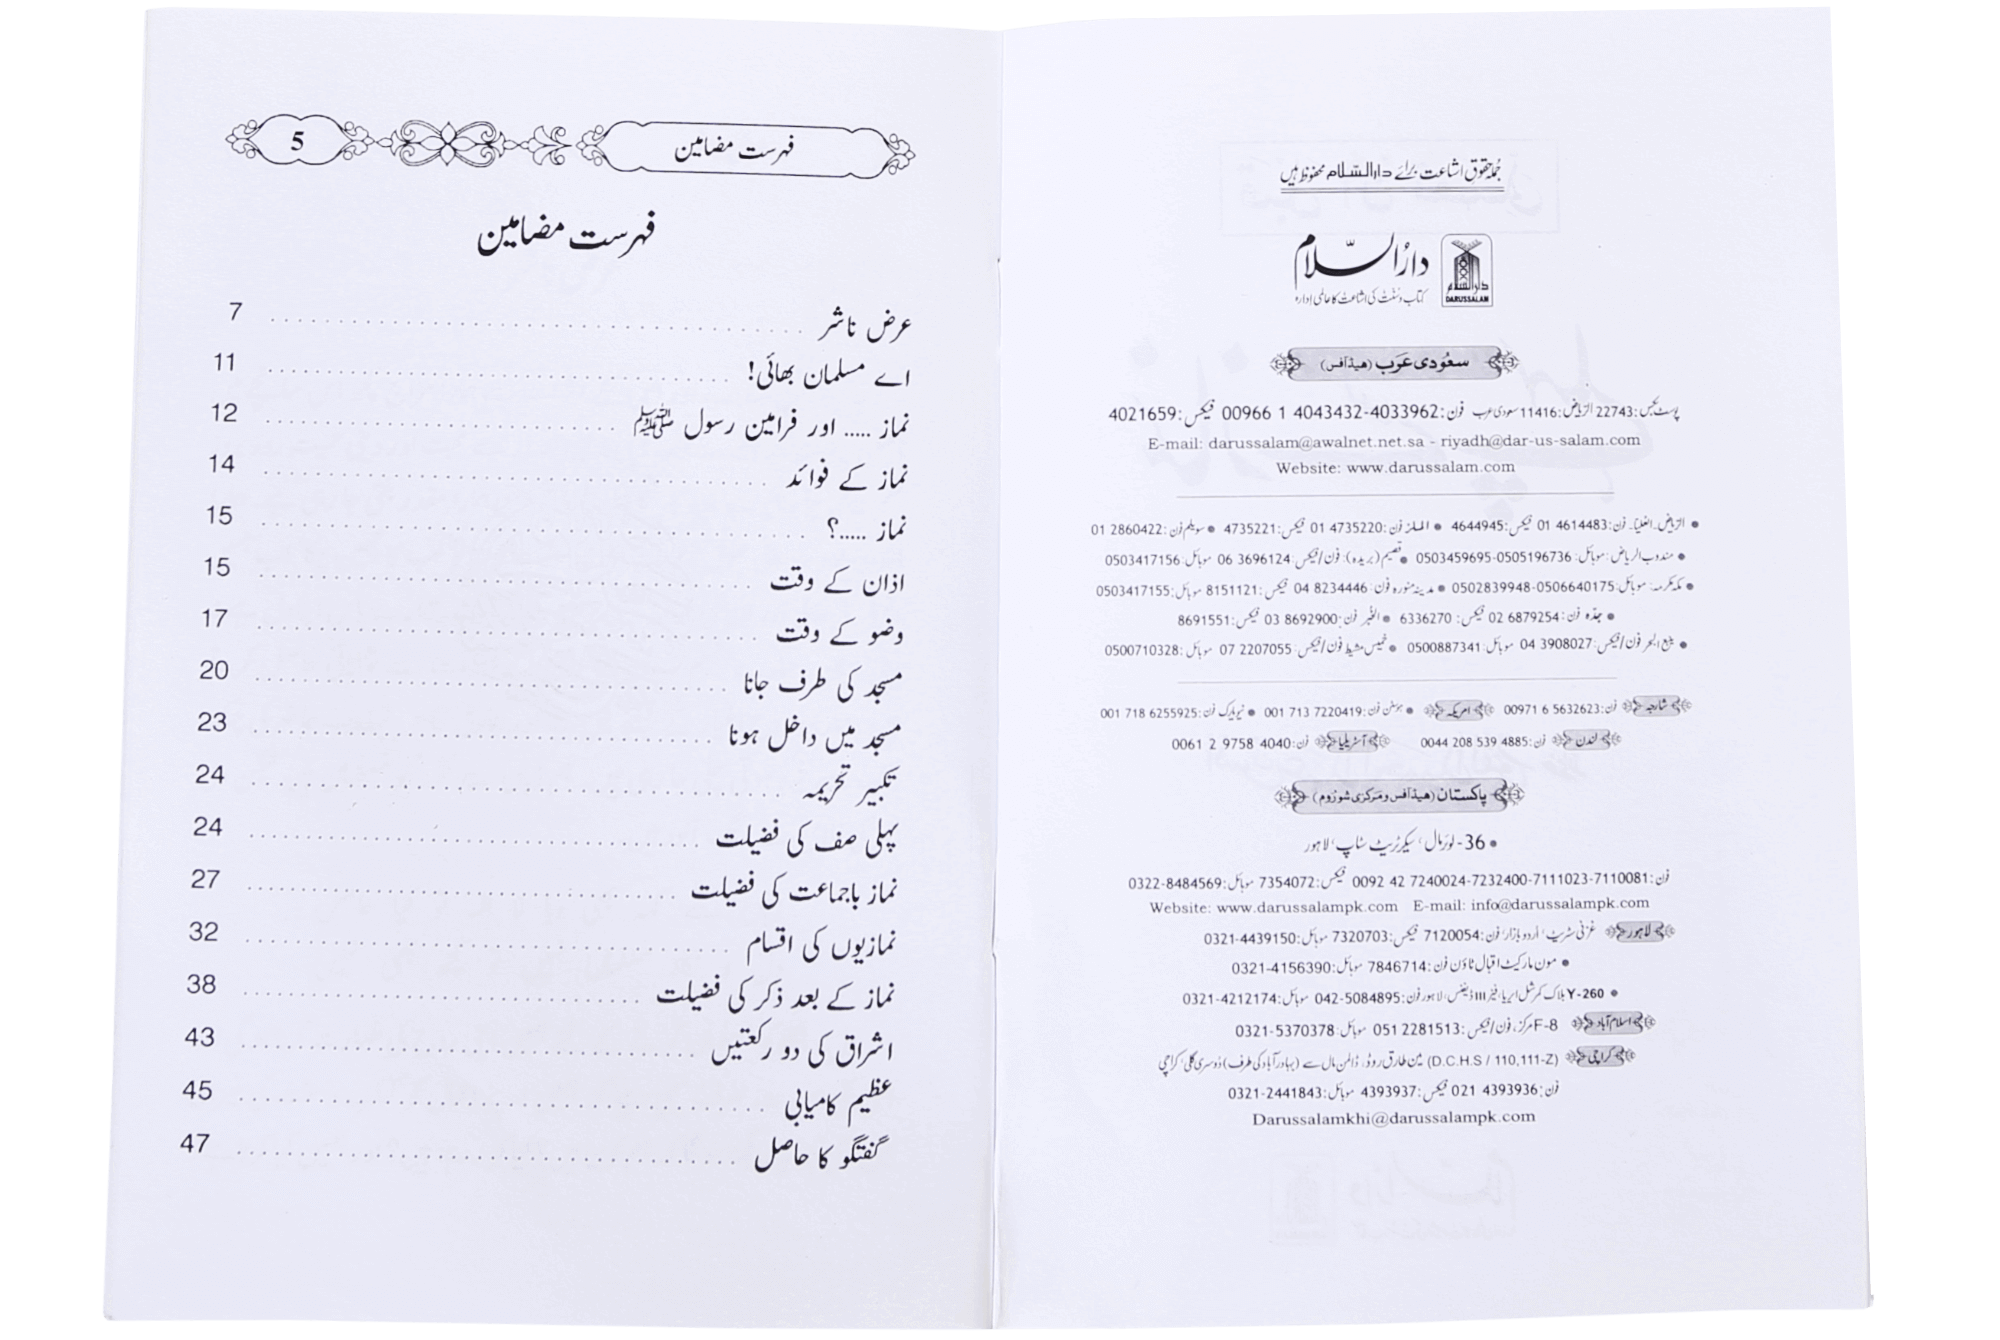 جملہ حقوق اشاعت برائے دارالسلام محفوظ ہیں
دارُالسّلام
کتاب و سنت کی اشاعت کا عالمی ادارہ
دارالسلام
DARUSSALAM
سعُودی عَرَب (ھیڈ آفس)
پوسٹ بکس: 22743 الریاض: 11416 سعودی عرب فون: 4033962-4043432 1 00966 فیکس: 4021659
E-mail: darussalam@awalnet.net.sa - riyadh@dar-us-salam.com
Website: www.darussalam.com
• الریاض۔ العلیا۔ فون: 4614483 01 فیکس: 4644945 • الملز فون: 4735220 01 فیکس: 4735221 • سویلم فون: 2860422 01
• مندوب الریاض: موبائل: 0505196736-0503459695 • قصیم (بریدہ): فون/فیکس: 3696124 06 موبائل: 0503417156
• مکہ مکرمہ: موبائل: 0506640175-0502839948 • مدینہ منورہ فون: 8234446 04 فیکس: 8151121 موبائل: 0503417155
• جدہ فون: 6879254 02 فیکس: 6336270 • الخبر فون: 8692900 03 فیکس: 8691551
• ینبع البحر فون/فیکس: 3908027 04 موبائل: 0500887341 • خمیس مشیط فون/فیکس: 2207055 07 موبائل: 0500710328
شارجہ فون: 5632623 6 00971 امریکہ • ہوسٹن فون: 7220419 713 001 • نیویارک فون: 6255925 718 001
لندن فون: 4885 539 208 0044 آسٹریلیا فون: 4040 9758 2 0061
پاکستان (ھیڈ آفس و مرکزی شوروم)
• 36- لوئر مال، سیکرٹریٹ سٹاپ، لاہور
فون: 7110081-7111023-7232400-7240024 42 0092 فیکس: 7354072 موبائل: 0322-8484569
Website: www.darussalampk.com E-mail: info@darussalampk.com
لاہور غزنی سٹریٹ، اردو بازار، فون: 7120054 فیکس: 7320703 موبائل: 0321-4439150
• مون مارکیٹ اقبال ٹاؤن فون: 7846714 موبائل: 0321-4156390
• Y-260 بلاک کمرشل ایریا، فیز III ڈیفنس، لاہور فون: 042-5084895 موبائل: 0321-4212174
اسلام آباد F-8 مرکز، فون/فیکس: 2281513 051 موبائل: 0321-5370378
کراچی (D.C.H.S / 110,111-Z) مین طارق روڈ، ڈالمن مال سے (بہادر آباد کی طرف) دوسری گلی، کراچی
فون: 4393936 021 فیکس: 4393937 موبائل: 0321-2441843
Darussalamkhi@darussalampk.com
فہرست مضامین 5
فہرست مضامین
عرض ناشر 7
اے مسلمان بھائی! 11
نماز ..... اور فرامین رسول ﷺ 12
نماز کے فوائد 14
نماز .....؟ 15
اذان کے وقت 15
وضو کے وقت 17
مسجد کی طرف جانا 20
مسجد میں داخل ہونا 23
تکبیر تحریمہ 24
پہلی صف کی فضیلت 24
نماز باجماعت کی فضیلت 27
نمازیوں کی اقسام 32
نماز کے بعد ذکر کی فضیلت 38
اشراق کی دو رکعتیں 43
عظیم کامیابی 45
گفتگو کا حاصل 47